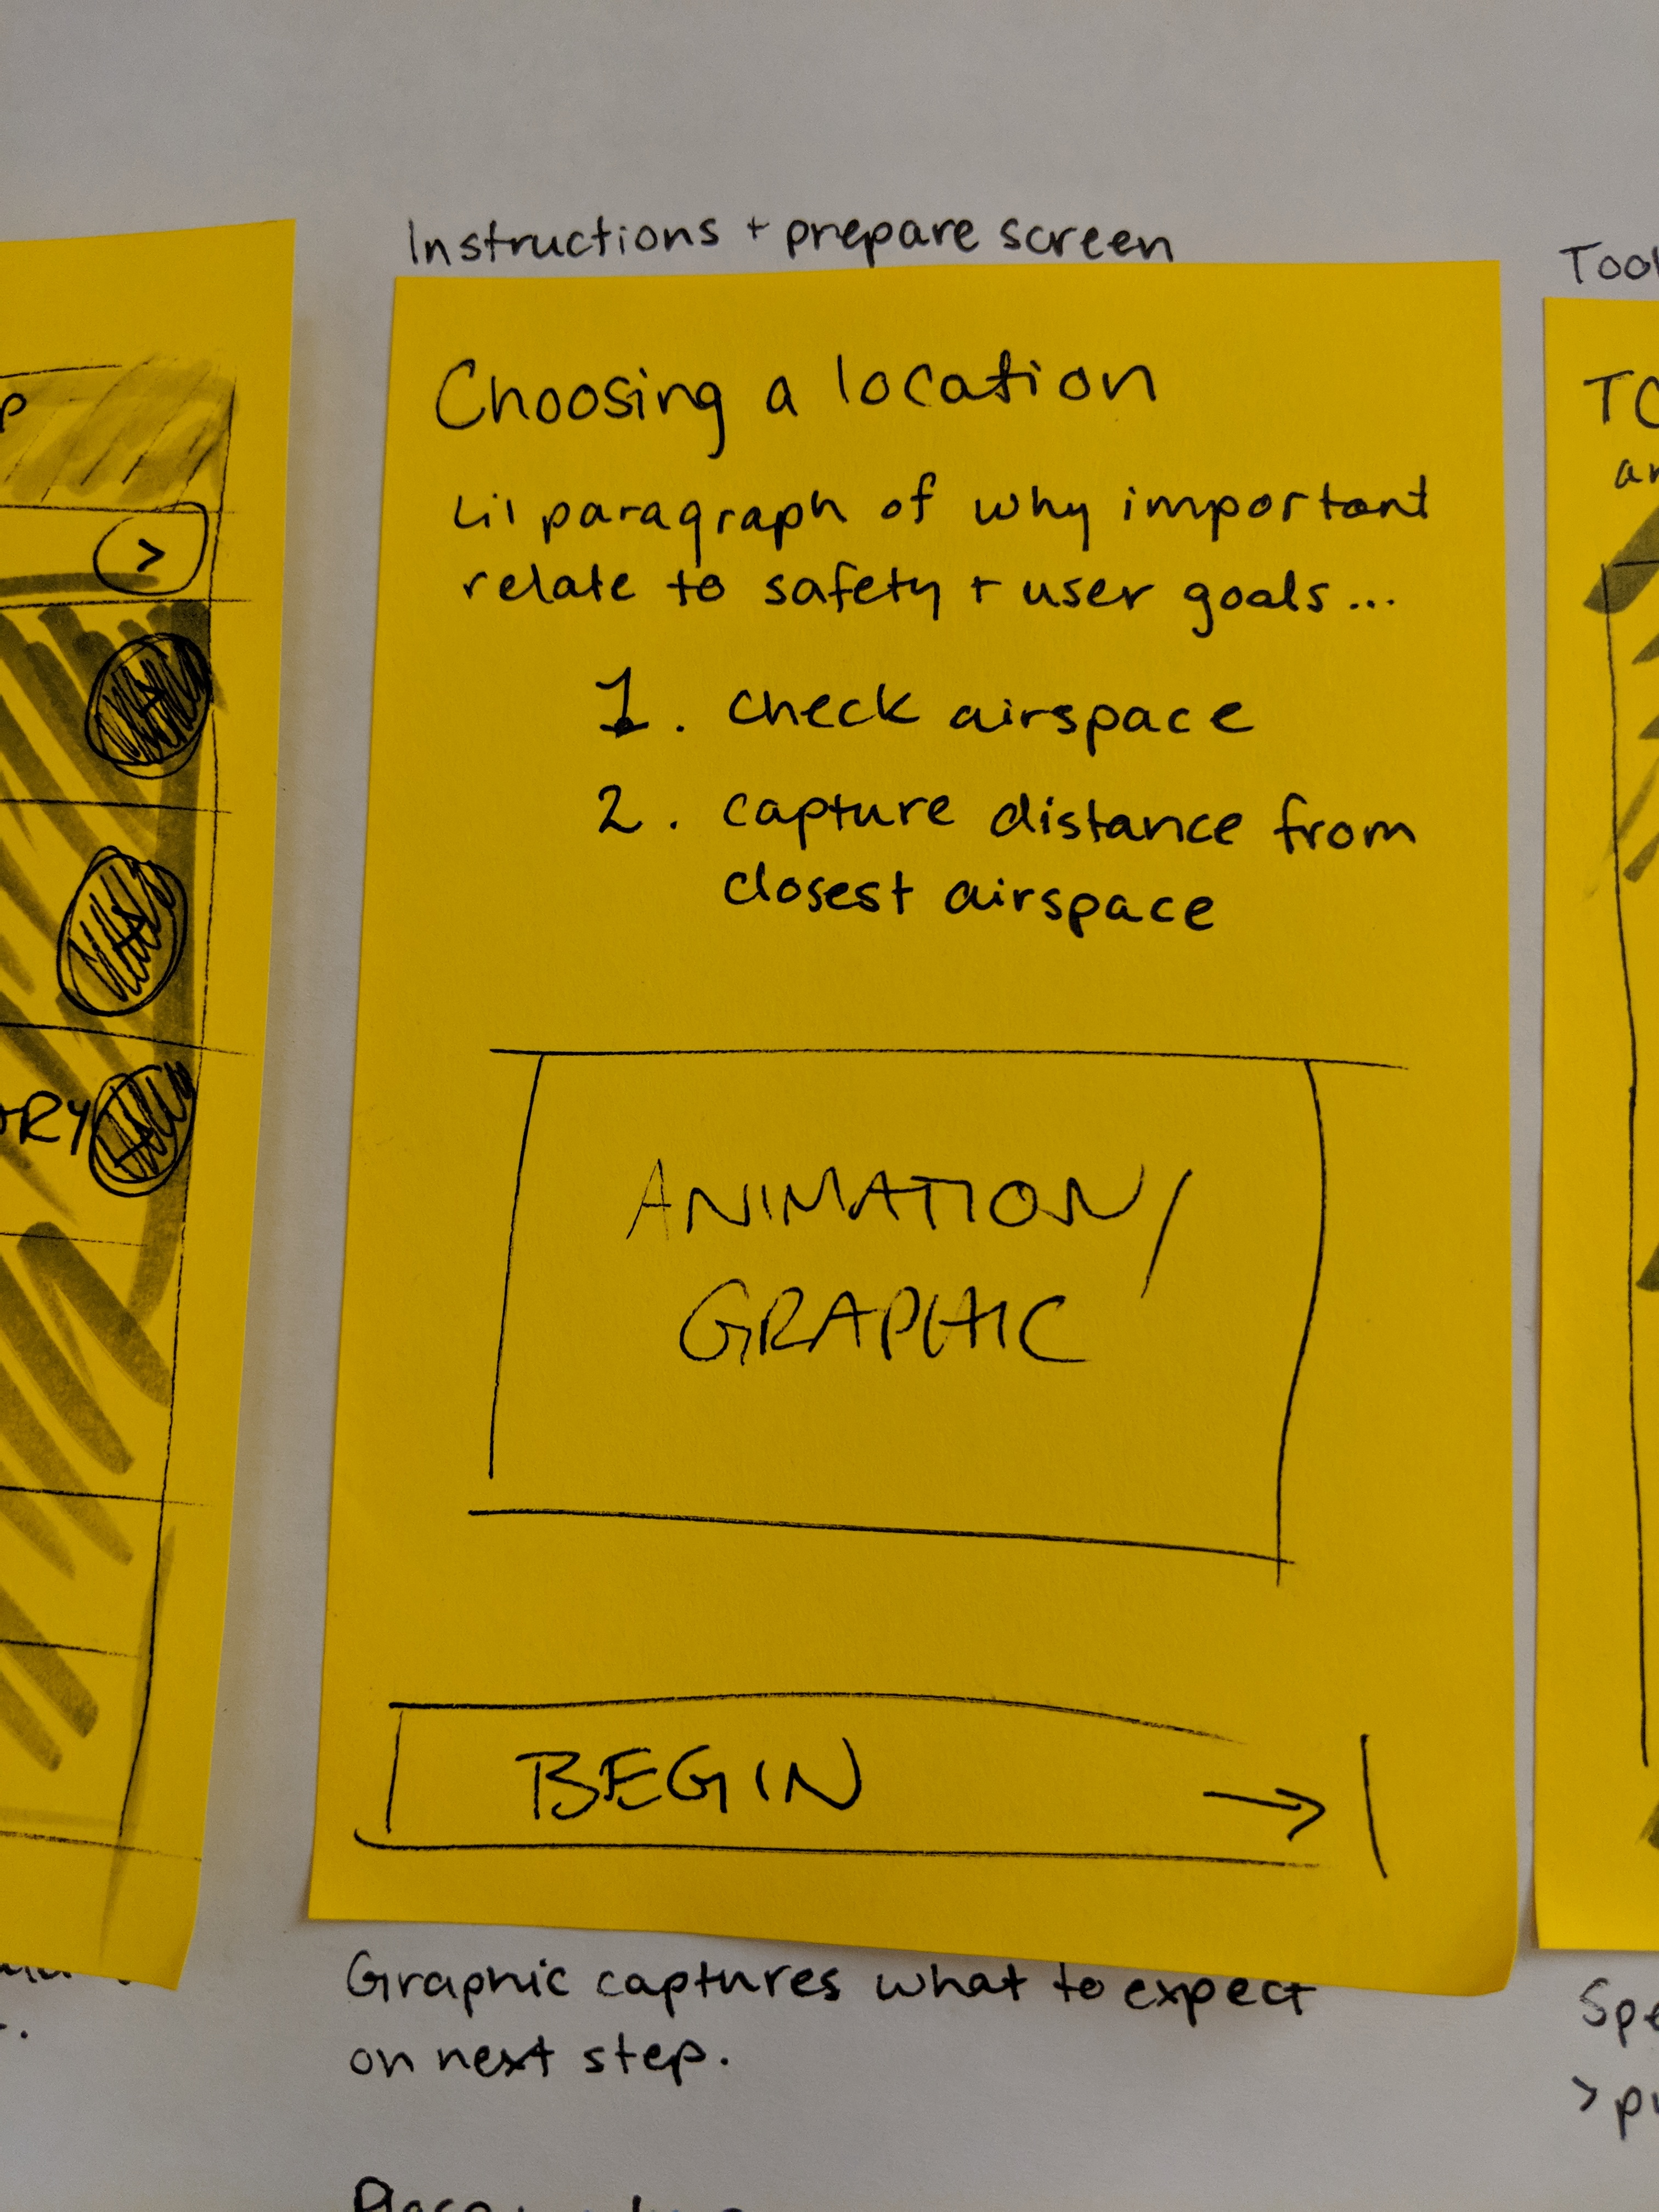 Instructions + prepare screen
Choosing a location
Lil paragraph of why important
relate to safety + user goals...
1. check airspace
2. capture distance from
closest airspace
ANIMATION/
GRAPHIC
BEGIN →
Graphic captures what to expect
on next step.
>